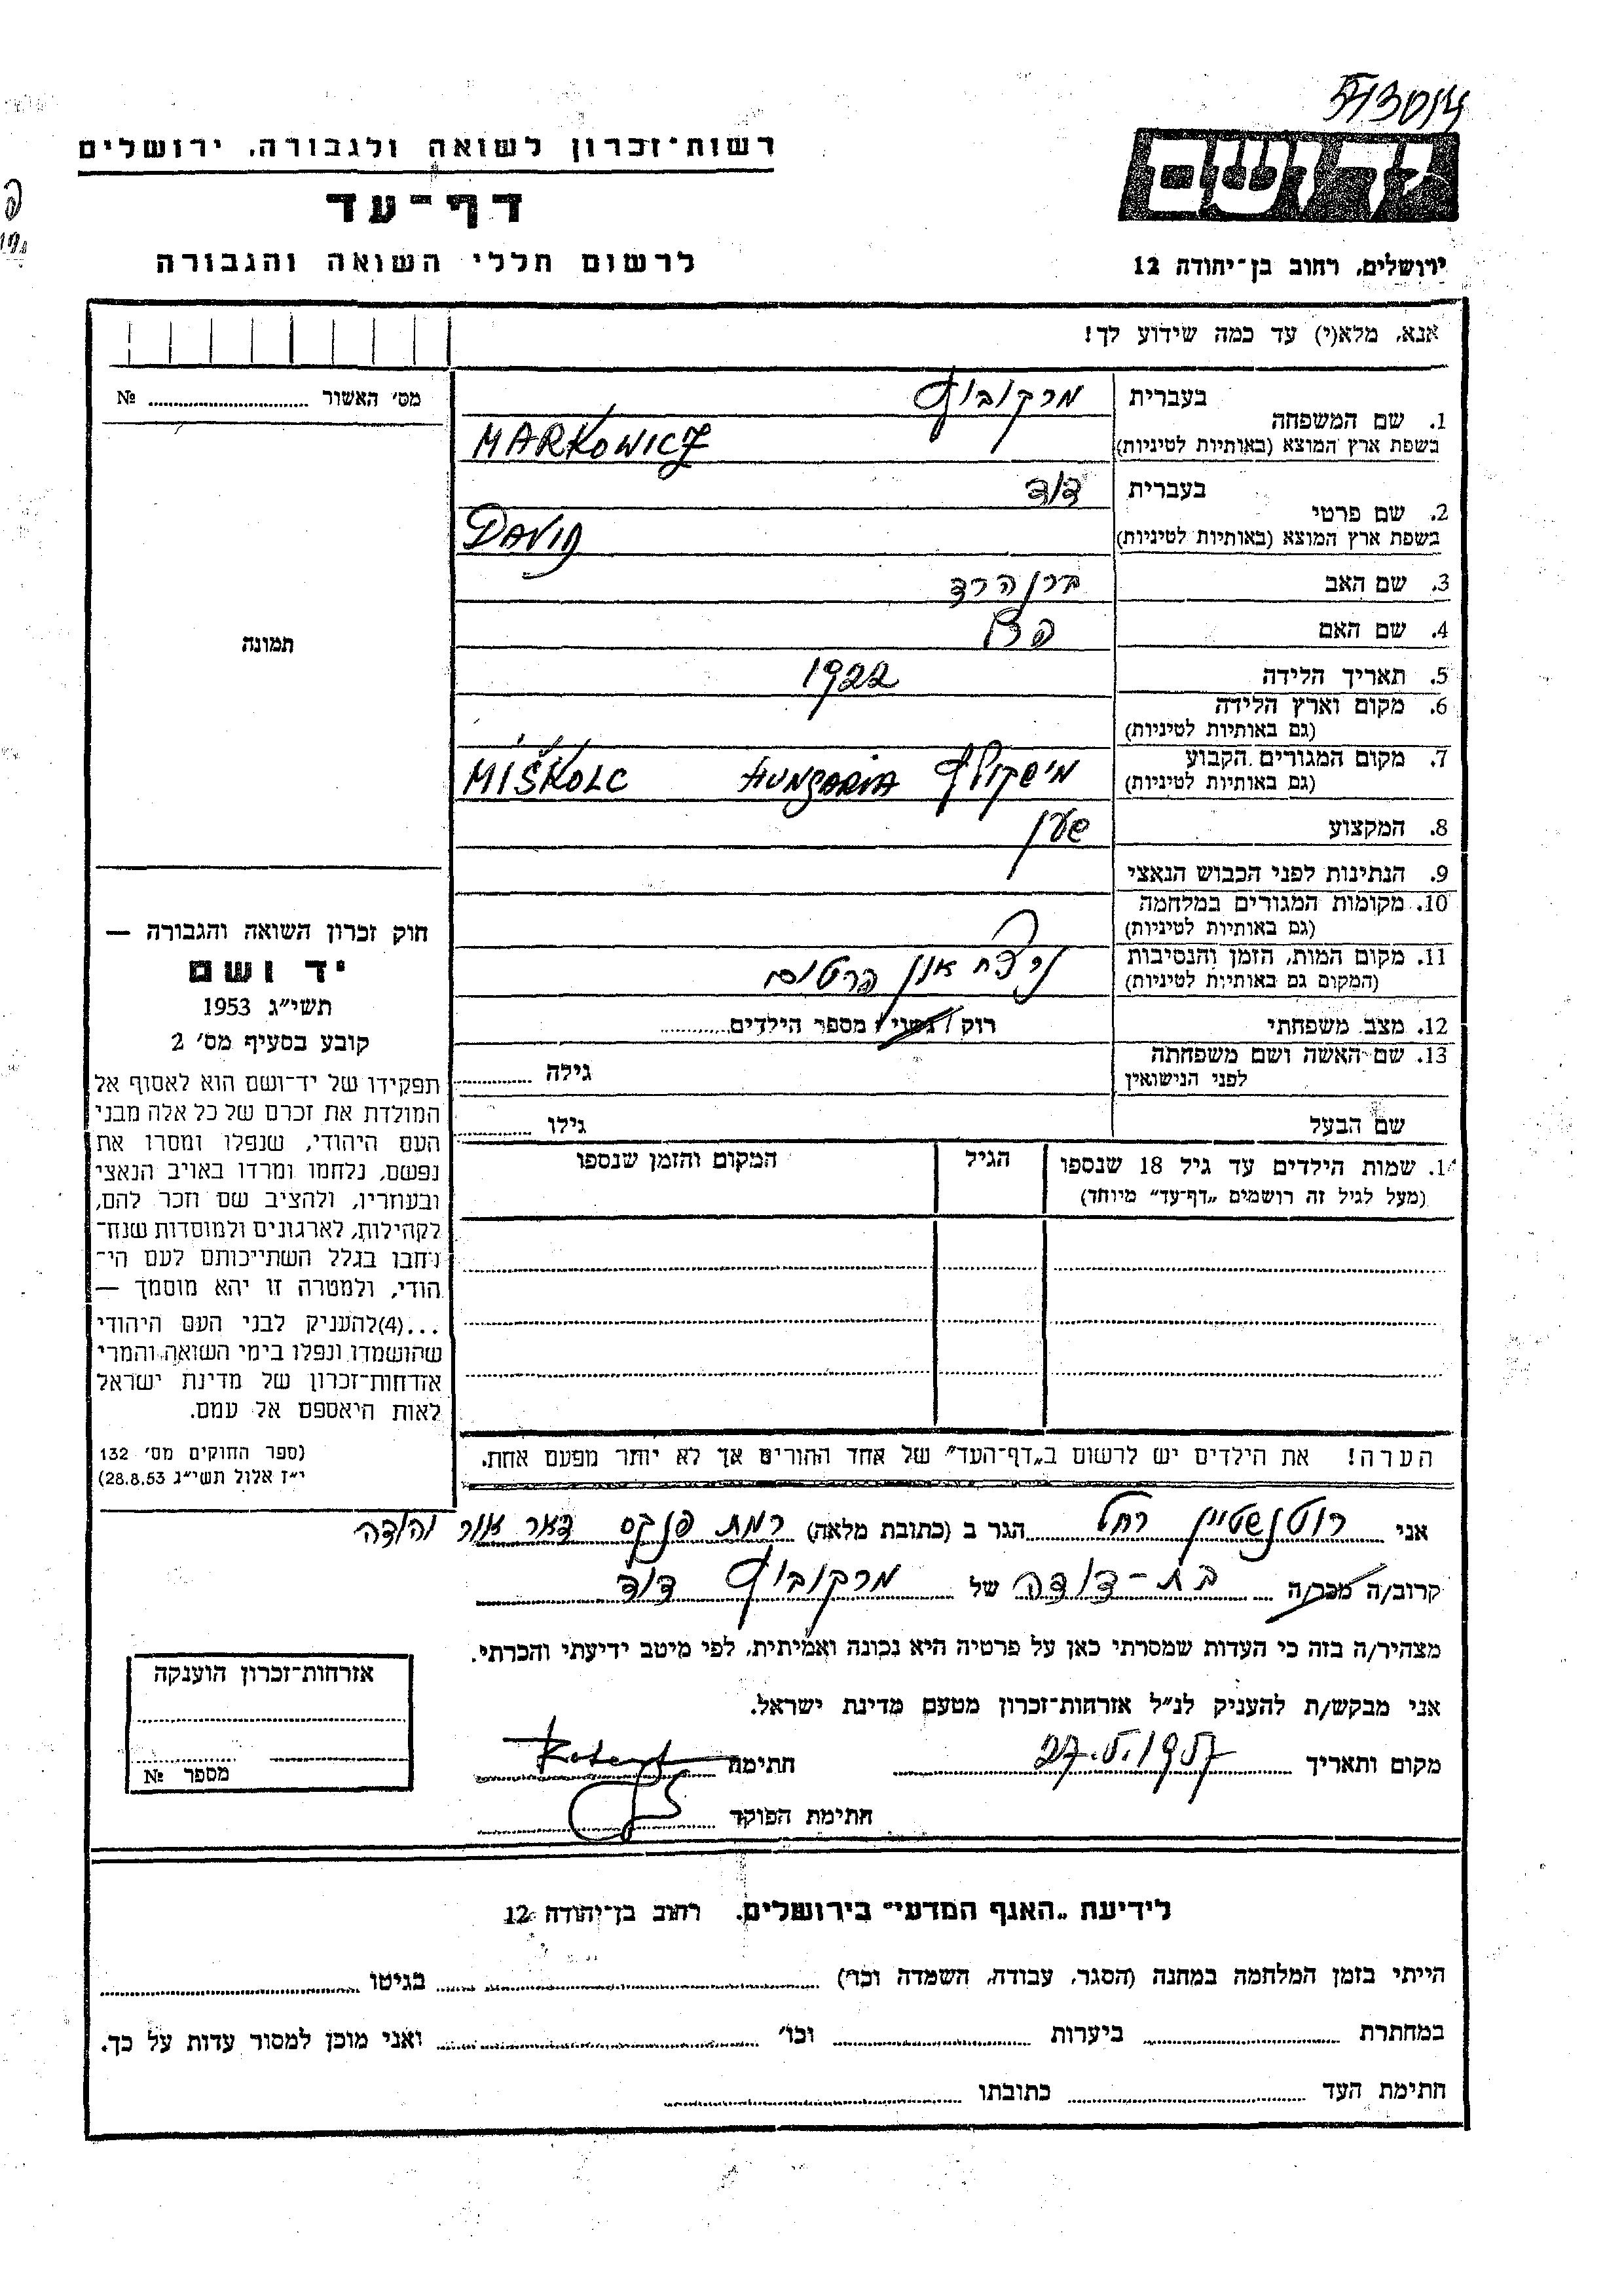 רשות־זכרון לשואה ולגבורה, ירושלים
דף־עד
לרשום חללי השואה והגבורה
ידושם
ירושלים, רחוב בן־יהודה 12
אנא, מלא(י) עד כמה שידוע לך!
מס׳ האשור № 
תמונה
1. שם המשפחה
בעברית מרקוביץ
בשפת ארץ המוצא (באותיות לטיניות) MARKOWICZ
2. שם פרטי
בעברית דוד
בשפת ארץ המוצא (באותיות לטיניות) DAVID
3. שם האב ברנהרד
4. שם האם
5. תאריך הלידה 1922
6. מקום וארץ הלידה
(גם באותיות לטיניות)
7. מקום המגורים הקבוע מישקולץ HUNGARIA MIŠKOLC
(גם באותיות לטיניות)
8. המקצוע שען
9. הנתינות לפני הכבוש הנאצי
10. מקומות המגורים במלחמה
(גם באותיות לטיניות)
11. מקום המות, הזמן והנסיבות
(המקום גם באותיות לטיניות) אין פרטים
12. מצב משפחתי רוק / נשוי / מספר הילדים
13. שם האשה ושם משפחתה
לפני הנישואין גילה
שם הבעל גילו
1. שמות הילדים עד גיל 18 שנספו
(מעל לגיל זה רושמים „דף־עד״ מיוחד)
הגיל
המקום והזמן שנספו
הערה! את הילדים יש לרשום ב„דף־העד״ של אחד ההורים אך לא יותר מפעם אחת.
חוק זכרון השואה והגבורה —
יד ושם
תשי״ג 1953
קובע בסעיף מס׳ 2
תפקידו של יד־ושם הוא לאסוף אל
המולדת את זכרם של כל אלה מבני
העם היהודי, שנפלו ומסרו את
נפשם, נלחמו ומרדו באויב הנאצי
ובעוזריו, ולהציב שם וזכר להם,
לקהילות, לארגונים ולמוסדות שנח־
רבו בגלל השתייכותם לעם הי־
הודי, ולמטרה זו יהא מוסמך —
...(4)להעניק לבני העם היהודי
שהושמדו ונפלו בימי השואה והמרי
אזרחות־זכרון של מדינת ישראל
לאות היאספם אל עמם.
(ספר החוקים מס׳ 132
י״ז אלול תשי״ג 28.8.53)
אני רוטנשטיין רחל הגר ב (כתובת מלאה) רמת פנקס דאר אור יהודה
קרוב/ה מכר/ה בת-דודה של מרקוביץ דוד
מצהיר/ה בזה כי העדות שמסרתי כאן על פרטיה היא נכונה ואמיתית, לפי מיטב ידיעתי והכרתי.
אני מבקש/ת להעניק לנ״ל אזרחות־זכרון מטעם מדינת ישראל.
מקום ותאריך 27.5.1957 חתימה
חתימת הפוקד
אזרחות־זכרון הוענקה
מספר №
לידיעת „האגף המדעי״ בירושלים, רחוב בן־יהודה 12
הייתי בזמן המלחמה במחנה (הסגר, עבודה, השמדה וכו׳) בגיטו
במחתרת ביערות וכו׳ ואני מוכן למסור עדות על כך.
חתימת העד כתובתו